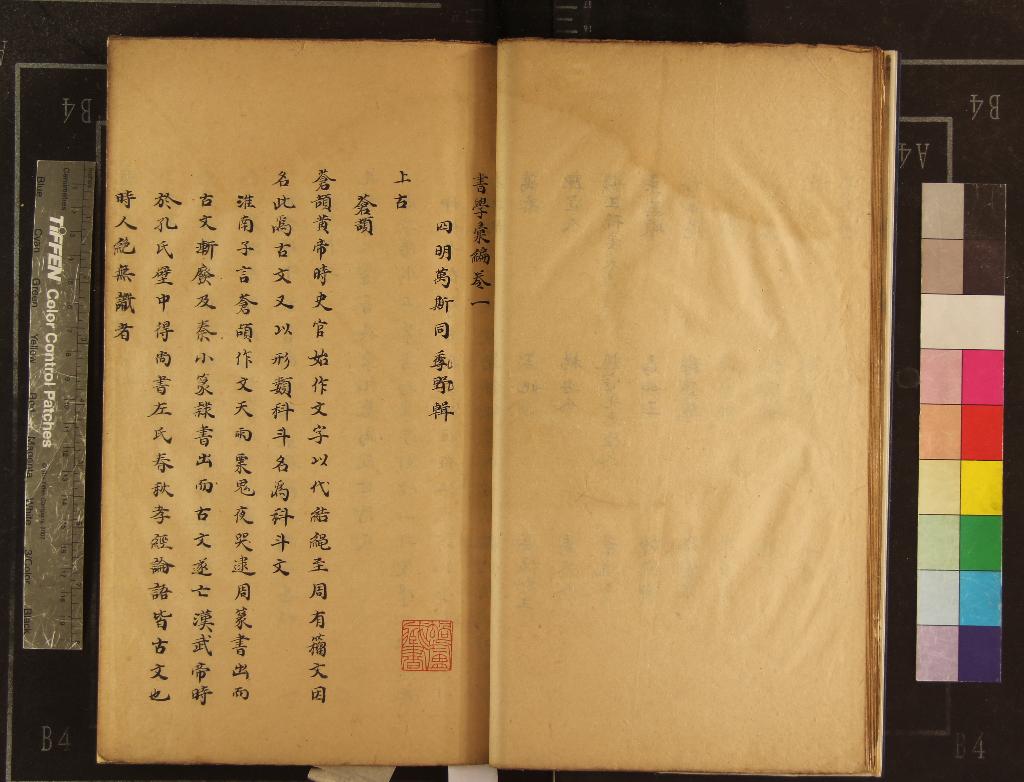 書學彙編卷一
四明萬斯同季野輯
上古
蒼頡
蒼頡黃帝時史官始作文字以代結繩至周有籀文因
名此爲古文又以形類科斗名爲科斗文
淮南子言蒼頡作文天雨粟鬼夜哭逮周篆書出而
古文漸廢及秦小篆隸書出而古文遂亡漢武帝時
於孔氏壁中得尚書左氏春秋孝經論語皆古文也
時人絕無識者
B4
B4
A4
B4
B4
TIFFEN Color Control Patches
Centimetres
Blue
Cyan
Green
Yellow
Red
Magenta
White
3/Color
Black